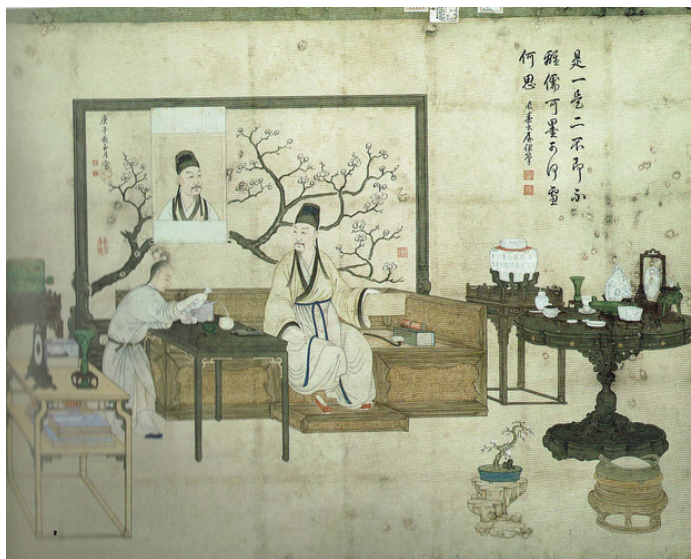 是一是二不即不
離儒可墨可何慮
何思 長春書屋偶筆
庚子